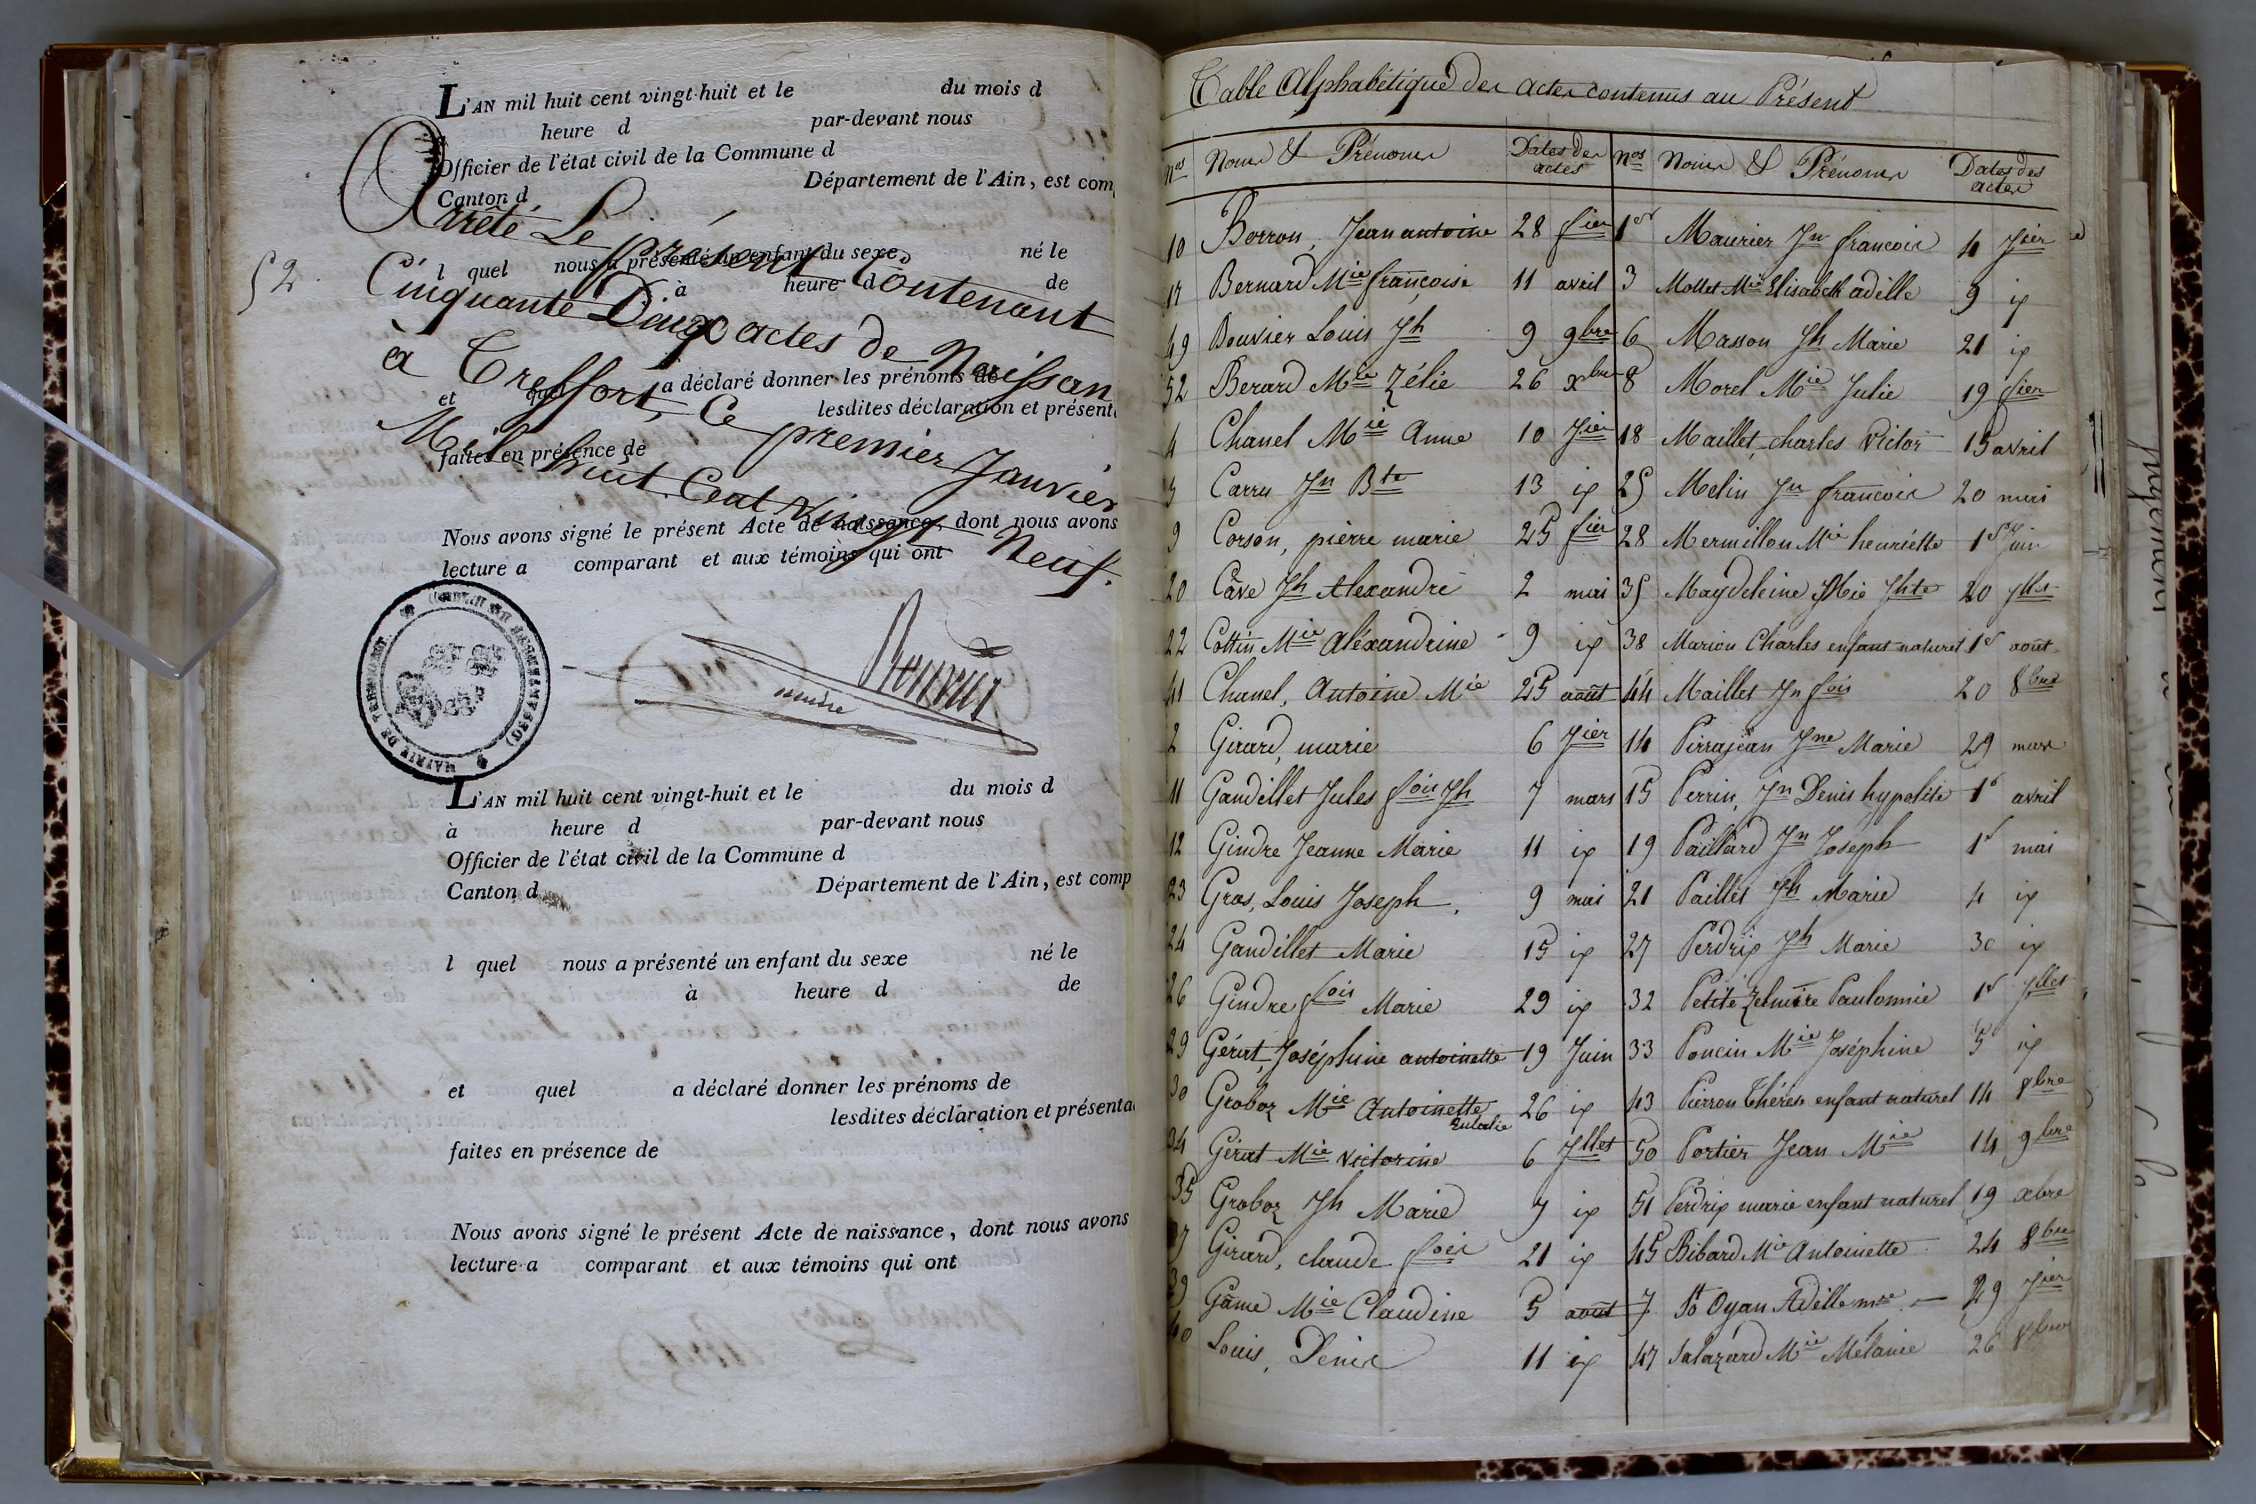 L'AN mil huit cent vingt-huit et le du mois d
heure d par-devant nous
Officier de l'état civil de la Commune d
Canton d Département de l'Ain, est com
Arrêté Le présent Contenant
l quel nous a présenté un enfant du sexe né le
à heure d de
52. Cinquante Deux actes de Naissan
à Treffort, Ce premier Janvier
et quel a déclaré donner les prénoms de
lesdites déclaration et présent
Mil huit Cent vingt Neuf.
faites en présence de
Nous avons signé le présent Acte de naissance, dont nous avons
lecture a comparant et aux témoins qui ont
MAIRIE DE
L'AN mil huit cent vingt-huit et le du mois d
à heure d par-devant nous
Officier de l'état civil de la Commune d
Canton d Département de l'Ain, est comp
l quel nous a présenté un enfant du sexe né le
à heure d de
et quel a déclaré donner les prénoms de
lesdites déclaration et présenta
faites en présence de
Nous avons signé le présent Acte de naissance, dont nous avons
lecture a comparant et aux témoins qui ont
Table Alphabétique des actes contenus au Présent
Nos Noms & Prénoms Dates des actes Nos Noms & Prénoms Dates des actes
10 Borron, Jean antoine 28 fier 1er Maurier Jn francois 4 Jier
17 Bernard Mie françoise 11 avril 3 Mollet Mie Elisabeth adélle 9 ix
49 Bouvier Louis Jh 9 9bre 6 Masson Jh Marie 21 ix
52 Berard Mie Zélie 26 xbre 8 Morel Mie Julie 19 fier
4 Chanel Mie Anne 10 Jier 18 Maillet, charles Victor 15 avril
5 Carru Jn Bte 13 ix 25 Melin Jn francois 20 mai
9 Corson, pierre marie 25 fier 28 Mermillon Mie henriétte 1er Juin
20 Câve Jh Alexandre 2 mai 35 Maydeleine Mie Jhte 20 Jllet
22 Cottin Mie Aléxandrine 9 ix 38 Marion Charles enfant naturel 1er août
41 Chanel, Antoine Mie 25 août 44 Maillet Jn fois 20 8bre
2 Girard, marie 6 Jier 14 Pirrajean Jne Marie 29 mars
11 Gandillet Jules fois Jh 7 mars 15 Perrin, Jn Denis hypolite 1er avril
12 Gindre Jeanne Marie 11 ix 19 Paillard Jn Joseph 1er mai
23 Gros, Louis Joseph, 9 mai 21 Paillet Jh Marie 4 ix
24 Gandillet Marie 15 ix 27 Perdrix Jh Marie 30 ix
26 Gindre fois Marie 29 ix 32 Petite Zelmire Paulonnie 1er Jllet
29 Gérut, Joséphine antoinette 19 Juin 33 Poncin Mie Joséphine 5 ix
30 Groboz Mie Antoinette Eulalie 26 ix 43 Pierron Thérèse enfant naturel 14 8bre
34 Gérut Mie Victorine 6 Jllet 50 Portier Jean Mie 14 9bre
35 Groboz Jh Marie 7 ix 51 Perdrix marie enfant naturel 19 xbre
37 Girard, claude fois 21 ix 45 Bibard Mie Antoinette 24 8bre
39 Game Mie Claudine 5 août 7 St Oyan Adélle mie 29 Jier
40 Louis, Denis 11 ix 47 Salazard Mie Mélanie 26 8bre